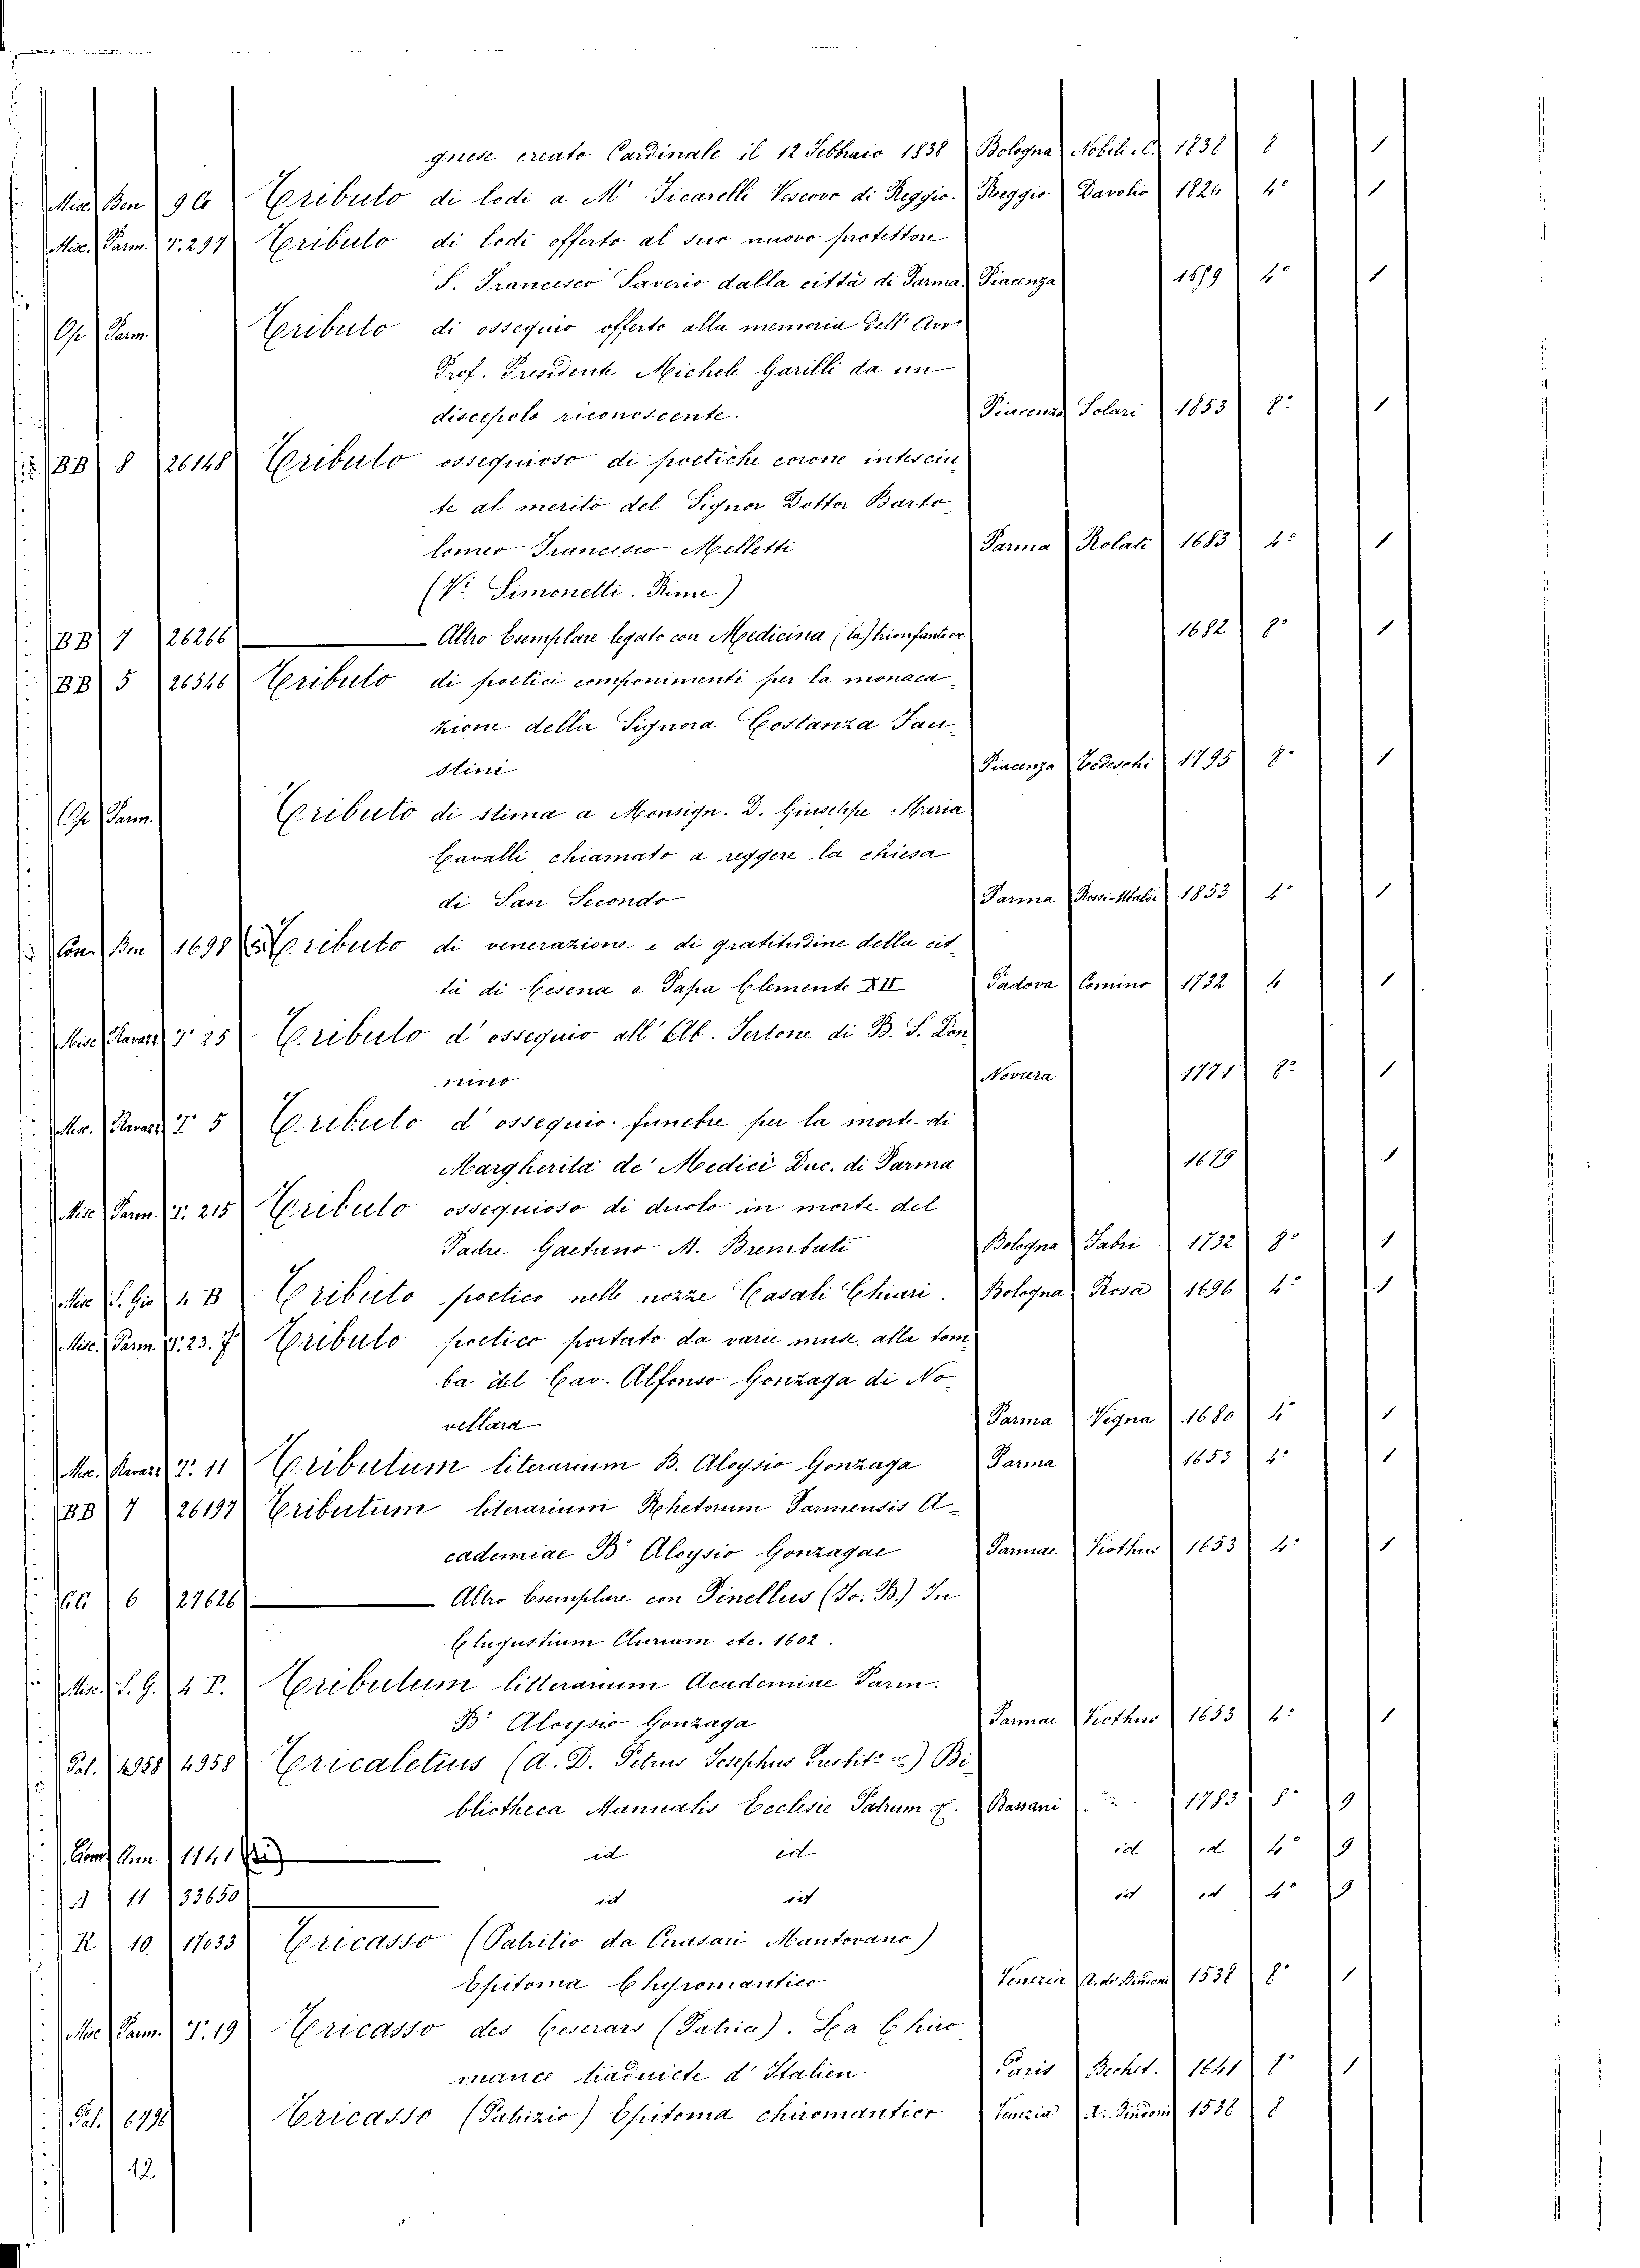 gnese creato Cardinale il 12 Febbraio 1838 Bologna Nobili e C. 1838 8 1
Misc. Ben 9 C Tributo di lodi a Mr Ficarelli Vescovo di Reggio. Reggio Davolio 1826 4° 1
Misc. Parm. T. 297 Tributo di lodi offerto al suo nuovo protettore
S. Francesco Saverio dalla città di Parma. Piacenza 1679 4° 1
Op. Parm. Tributo di ossequio offerto alla memoria dell' Avv.
Prof. Presidente Michele Garilli da un
discepolo riconoscente. Piacenza Solari 1853 8° 1
BB 8 26148 Tributo ossequioso di poetiche corone intescin
te al merito del Signor Dottor Barto
lomeo Francesco Melletti Parma Rolati 1683 4° 1
(Vi. Simonelli. Rime)
BB 7 26266 Altro Esemplare legato con Medicina (la) trionfante ec. 1682 8° 1
BB 5 26546 Tributo di poetici componimenti per la monaca
zione della Signora Costanza Fau
stini Piacenza Tedeschi 1795 8° 1
Op. Parm. Tributo di stima a Monsign. D. Giuseppe Maria
Cavalli chiamato a reggere la chiesa
di San Secondo Parma Rossi-Ubaldi 1853 4° 1
Con. Ben 1698 Tributo di venerazione e di gratitudine della cit
tà di Cesena a Papa Clemente XII Padova Comino 1732 4 1
Misc. Ravazz T. 25 Tributo d'ossequio all' Ab. Sertone di B. S. Don
nino Novara 1771 8° 1
Misc. Ravazz T. 5 Tributo d'ossequio funebre per la morte di
Margherita de' Medici Duc. di Parma 1679 1
Misc. Parm. T. 215 Tributo ossequioso di duolo in morte del
Padre Gaetano M. Brembati Bologna Fabri 1732 8° 1
Misc S. Gio 4 B Tributo poetico nelle nozze Casali Chiari. Bologna Rosa 1696 4° 1
Misc. Parm. T. 23. Tributo poetico portato da varie muse alla tom
ba del Cav. Alfonso Gonzaga di No
vellara Parma Vigna 1680 4° 1
Misc. Ravazz T. 11 Tributum literarium B. Aloysio Gonzaga Parma 1653 4° 1
BB 7 26197 Tributum literarium Rhetorum Parmensis A
cademiae B° Aloysio Gonzagae Parmae Viothus 1653 4° 1
6 27626 Altro Esemplare con Pinellus (Jo. B.) In
Augustium Clariam etc. 1602.
Misc. S. G. 4 P. Tributum litterarium Academiae Parm.
B° Aloysio Gonzaga Parmae Viothus 1653 4° 1
Pal. 4958 4958 Tricaletius (A. D. Petrus Josephus Presbit. &) Bi
bliotheca Manualis Ecclesie Patrum &. Bassani 1783 8° 9
1141 id id id id 4° 9
11 33650 id id id id 4° 9
R 10. 17033 Tricasso (Patritio da Cerasari Mantovano)
Epitoma Chyromantico Venezia A. de Bindoni 1538 8° 1
Misc Parm. T. 19 Tricasso des Ceserars (Patrice). La Chiro
mance traduicte d'Italien Paris Bechet. 1641 8° 1
Pal. 6796 Tricasso (Patrizio) Epitoma chiromantico Venezia A. Bindoni 1538 8
12